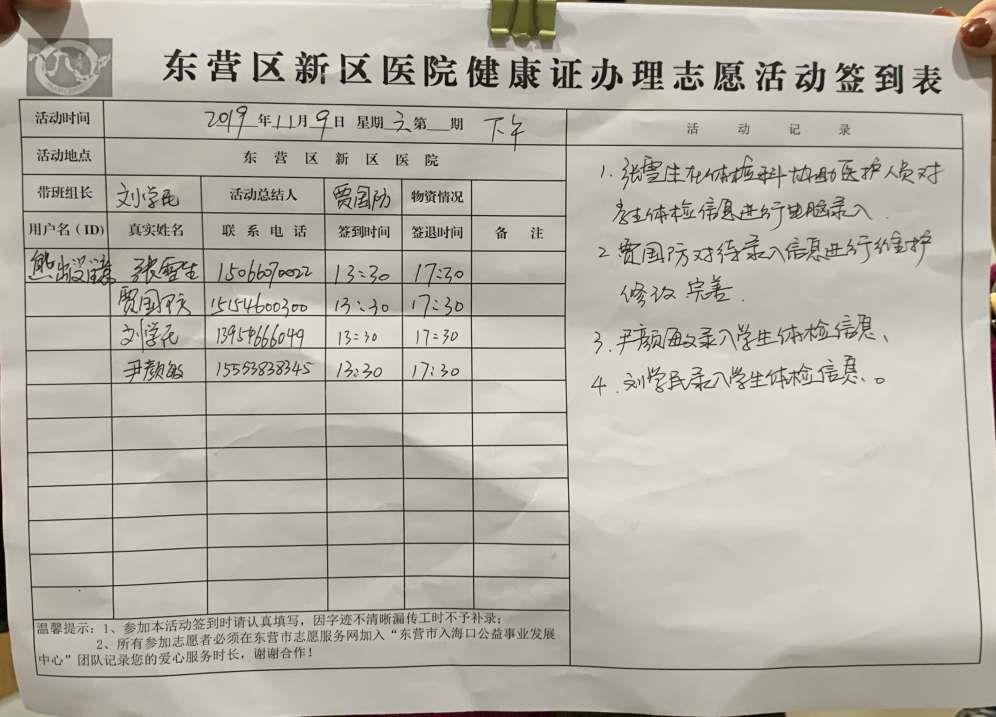 东营区新区医院健康证办理志愿活动签到表
活动时间 2019年11月9日 星期六第 期 下午
活动地点 东营区新区医院
带班组长 刘学民 活动总结人 贾国防 物资情况
用户名(ID) 真实姓名 联系电话 签到时间 签退时间 备注
熊出没 张雪生 15066070022 13:30 17:30
贾国防 15154600300 13:30 17:30
刘学民 13954666049 13:30 17:30
尹颜敏 15553838345 13:30 17:30
温馨提示:1、参加本活动签到时请认真填写,因字迹不清晰漏传工时不予补录;
2、所有参加志愿者必须在东营市志愿服务网加入“东营市入海口公益事业发展
中心”团队记录您的爱心服务时长,谢谢合作!
活动记录
1.张雪生在体检科协助医护人员对
学生体检信息进行电脑录入
2.贾国防对待录入信息进行维护
修改完善.
3.尹颜敏录入学生体检信息、
4.刘学民录入学生体检信息、。